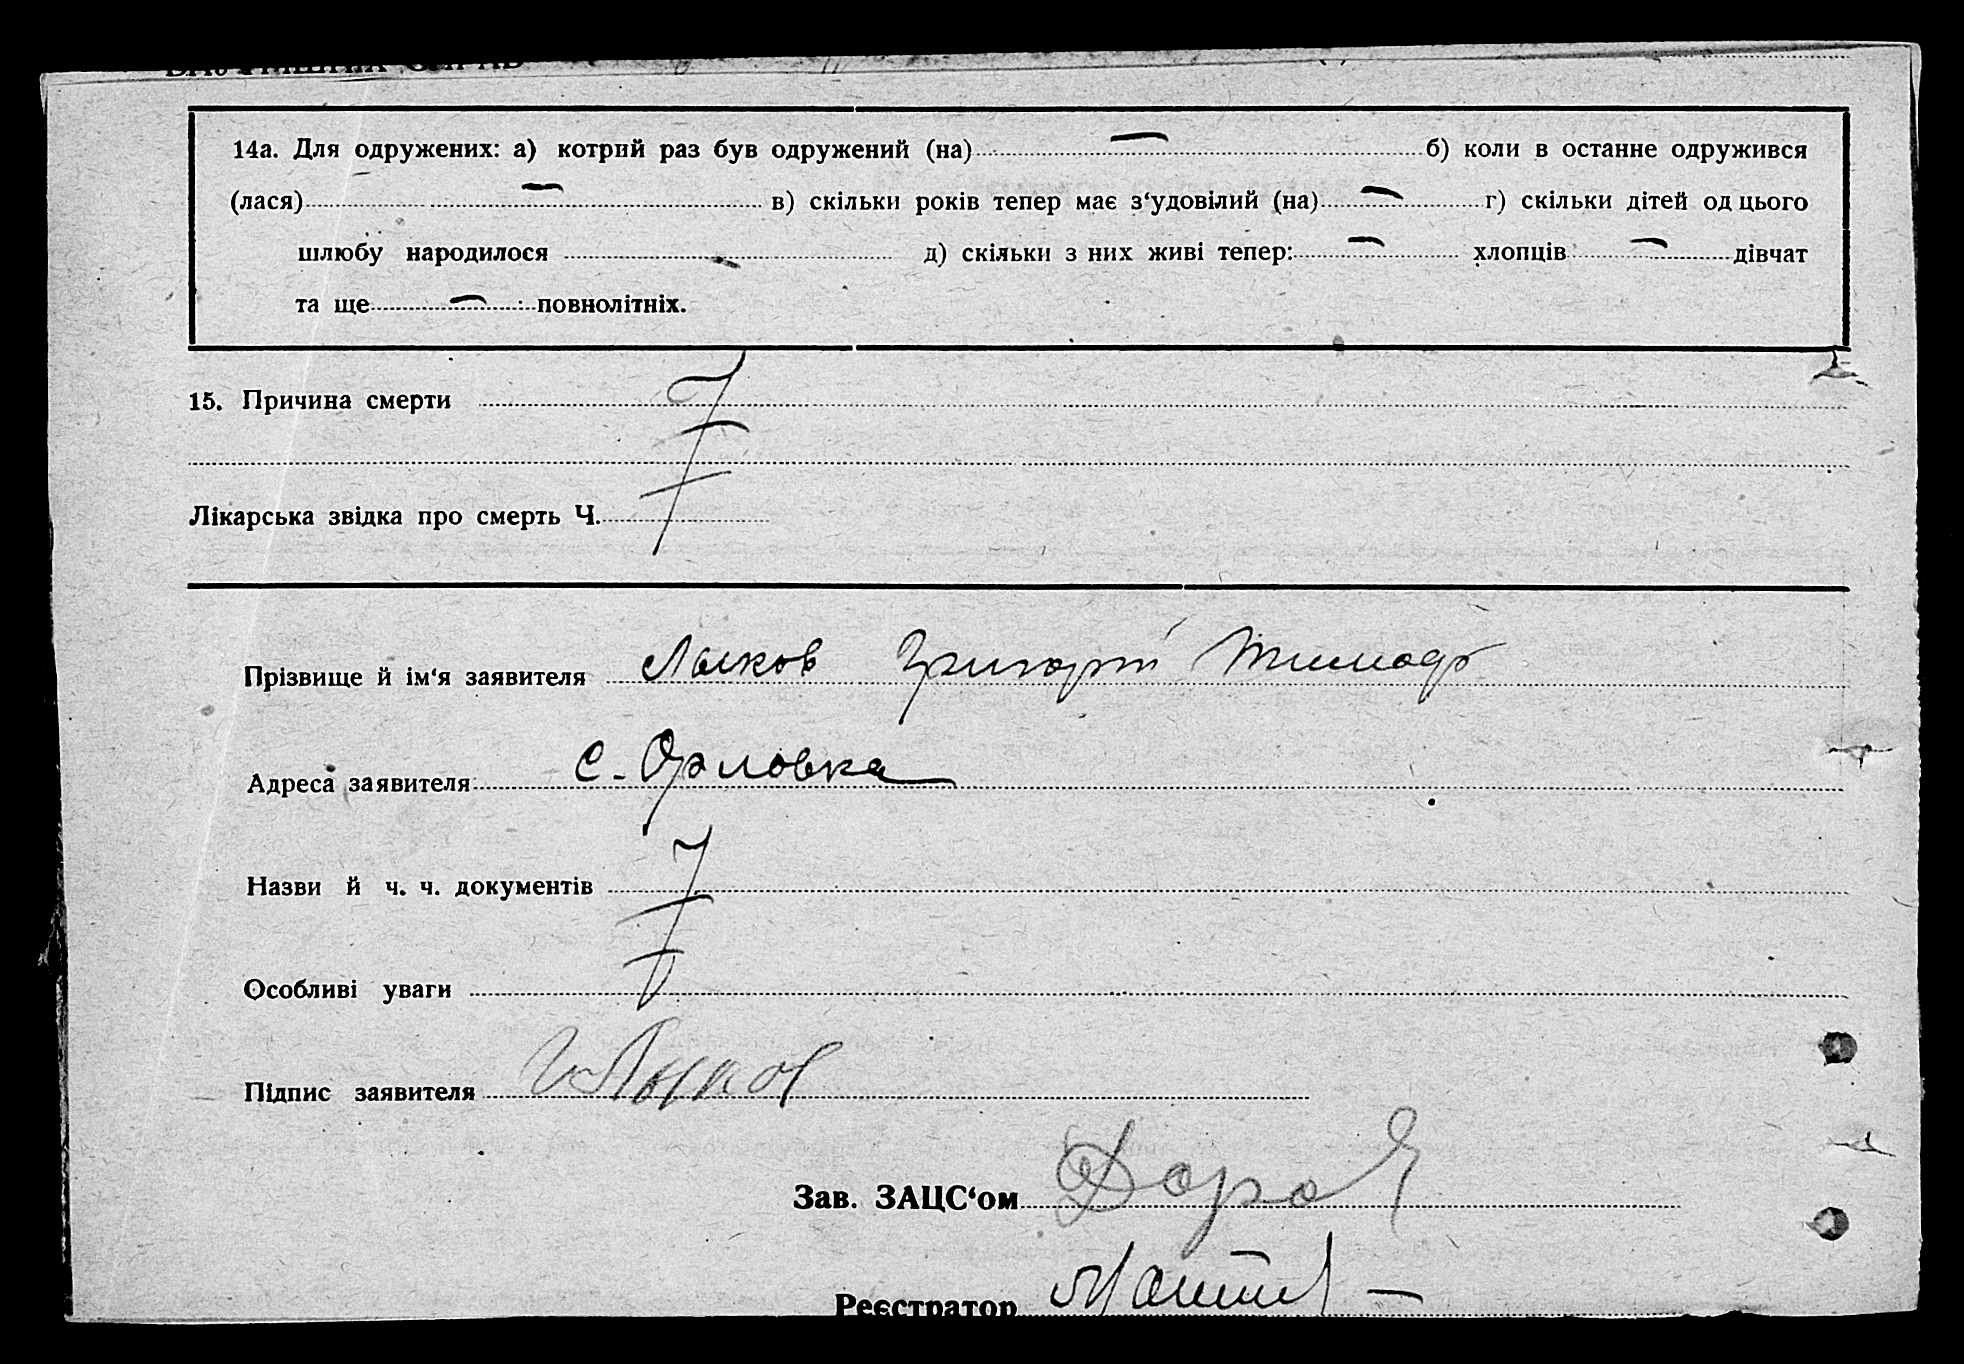 14а. Для одружених: а) котрий раз був одружений (на) — б) коли в останне одружився
(лася) — в) скільки років тепер має з‘удовілий (на) — г) скільки дітей од цього
шлюбу народилося — д) скільки з них живі тепер: — хлопців — дівчат
та ще — повнолітніх.
15. Причина смерти
Лікарська звідка про смерть Ч.
Прізвище й ім‘я заявителя Лыков Григорій
Адреса заявителя с. Орловка
Назви й ч. ч. документів
Особливі уваги
Підпис заявителя Лыков
Зав. ЗАЦС‘ом
Реєстратор